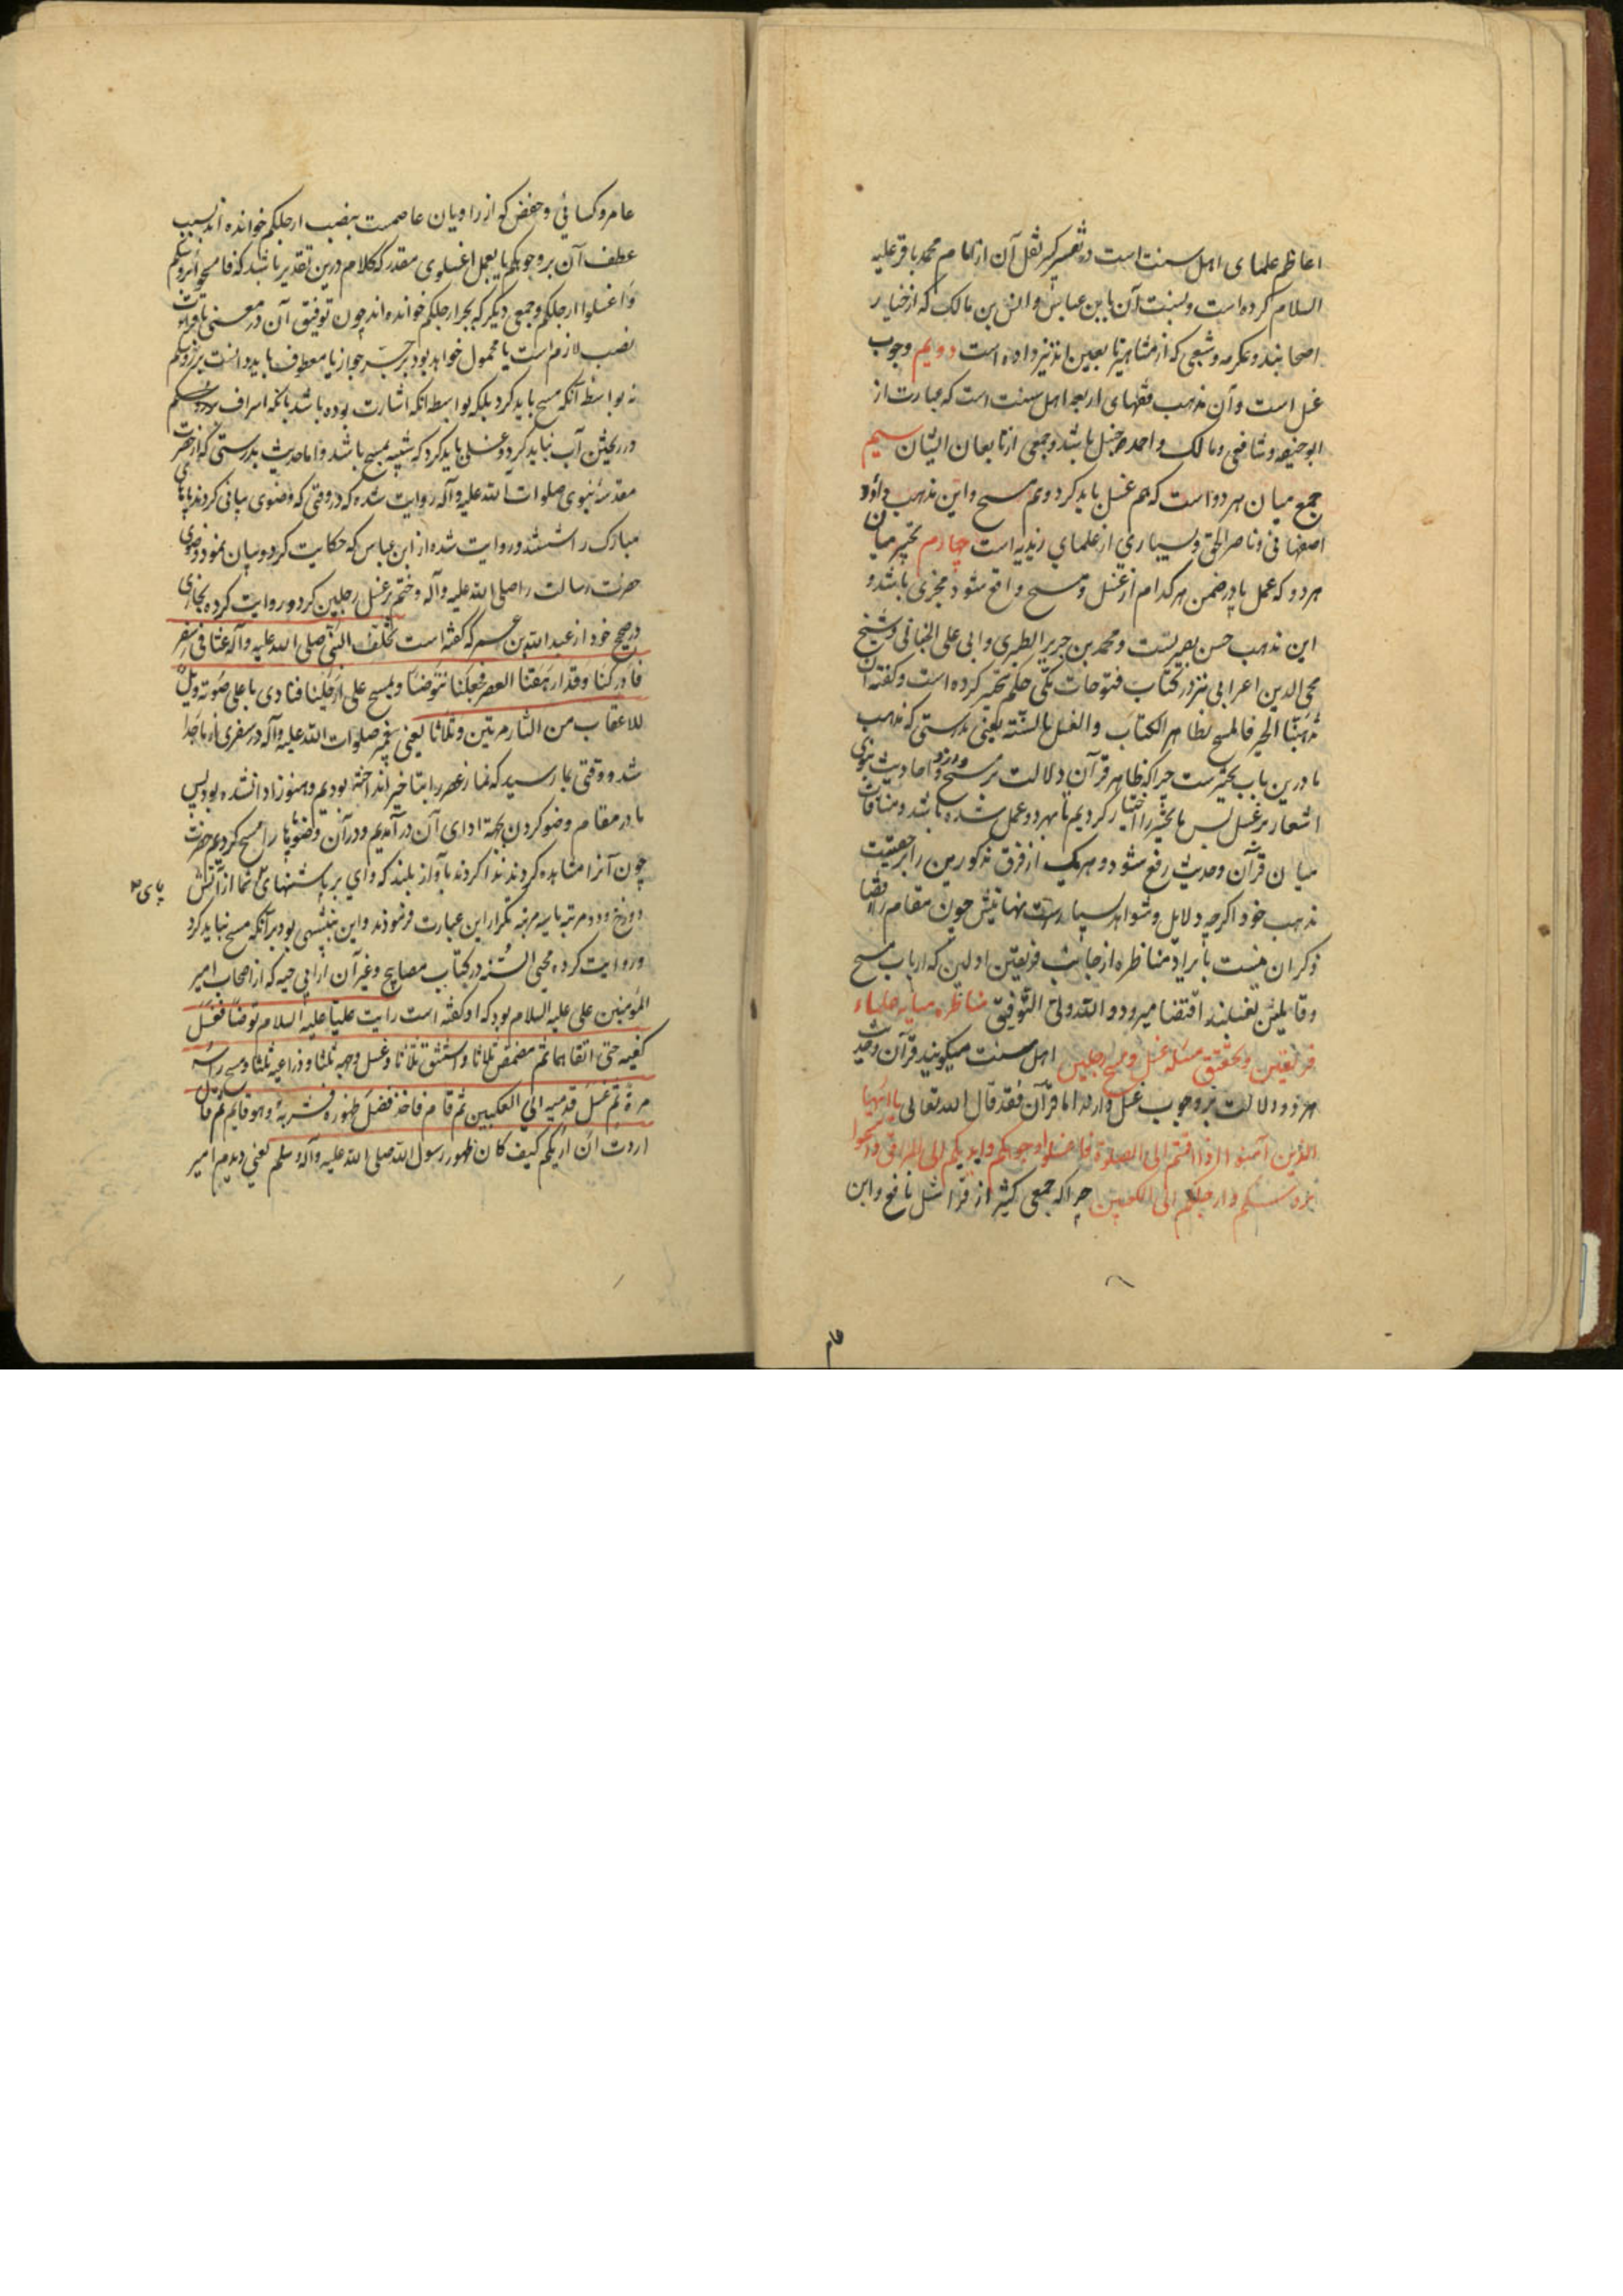 اعاظم علمای اهل سنت است در تفسیر کبیر نقل آن از امام محمد باقر علیه
السلام کرده است و نسبت آن بابن عباس و انس بن مالک که از خیار
اصحابند و عکرمه و شعبی که از مشاهیر تابعین اند نیز داده است دویم وجوب
غسل است و آن مذهب فقهای اربعه اهل سنت است که عبارت از
ابوحنیفه و شافعی و مالک و احمد حنبل باشد و جمعی از تابعان ایشان سیم
جمع میان هر دو است که هم غسل باید کرد و هم مسح و این مذهب داود
اصفهانی و ناصر الحق و بسیاری از علمای زیدیه است چهارم تخییر میان
هر دو که عمل بآن در ضمن هر کدام از غسل و مسح واقع شود مجزی باشد و
این مذهب حسن بصریست و محمد بن جریر الطبری و ابی علی الجبائی و شیخ
محی الدین اعرابی نیز در کتاب فتوحات مکی حکم بتخییر کرده است و گفته ان
مذهبنا التخییر فالمسح بظاهر الکتاب والغسل بالسنّة یعنی بدرستی که مذهب
ما درین باب تخییرست چرا که ظاهر قرآن دلالت بر مسح دارد و احادیث نبوی
اشعار بر غسل پس ما تخییر را اختیار کردیم تا بهر دو عمل شده باشد و منافات
میان قرآن و حدیث رفع شود و هر یک از فرق مذکورین را بر حقیت
مذهب خود اگرچه دلایل و شواهد بسیارست نهایتش چون مقام را اقتضا
ذکر آن نیست بایراد مناظره از جانب فریقین اولین که ارباب مسح
و قایلین بغسلند اقتضا میرود و الله ولی التوفیق مناظره میانه علماء
فریقین و تحقیق مسئله غسل و مسح رجلین اهل سنت میگویند قرآن و حدیث
هر دو دلالت بر وجوب غسل دارد اما قرآن فقد قال الله تعالی یا ایها
الذین آمنوا اذا قمتم الی الصلوة فاغسلوا وجوهکم وایدیکم الی المرافق وامسحوا
برؤسکم وارجلکم الی الکعبین چرا که جمعی کثیر از قرا مثل نافع و ابن
عامر
عامر و کسائی و حفص که از راویان عاصمست بنصب ارجلکم خوانده اند بسبب
عطف آن بر وجوهکم یا بعمل اغسلوی مقدر که کلام درین تقدیر باشد که فامسحوا برؤسکم
واغسلوا ارجلکم و جمعی دیگر که بجر ارجلکم خوانده اند چون توفیق آن در معنی با قراءت
نصب لازم است یا محمول خواهد بود بر جرّ جوار یا معطوف باید دانست برؤسکم
نه بواسطه آنکه مسح باید کرد بلکه بواسطه آنکه اشارت بوده باشد بآنکه اسراف
در ریختن آب نباید کرد و غسلی باید کرد که شبیه بمسح باشد و اما حدیث بدرستی که از حضرت
مقدسه نبوی صلوات الله علیه و آله روایت شده که در وقتی که وضوی بیانی کردند پاهای
مبارک را شستند و روایت شده از ابن عباس که حکایت کرد و بیان نمود وضوی
حضرت رسالت را صلی الله علیه و آله و ختم بر غسل رجلین کرد و روایت کرده بخاری
در صحیح خود از عبد الله بن عمر که گفته است تخلّف النبی صلی الله علیه و آله عنّا فی سفر
فادرکنا وقد ارهقنا العصر فجعلنا نتوضأ ونمسح علی ارجلنا فنادی باعلی صوته ویلٌ
للاعقاب من النار مرتین وثلاثا یعنی پیغمبر صلوات الله علیه و آله در سفری از ما جدا
شد و وقتی بما رسید که نماز عصر را بتاخیر انداخته بودیم و هنوز ادا نشده بود پس
ما در مقام وضو کردن بجهة ادای آن در آمدیم و در آن وضو پاها را مسح کردیم حضرت
چون آنرا مشاهده کردند ندا کردند بآواز بلند که وای بر پاشنهای شما از آتش
پای
دوزخ و دو مرتبه یا سه مرتبه تکرار این عبارت فرمودند و این تنبیهی بود بر آنکه مسح نباید کرد
و روایت کرده محیی السنّه در کتاب مصابیح و غیر آن از ابی حیه که از اصحاب امیر
المؤمنین علی علیه السلام بود که او گفته است رایت علیّا علیه السلام توضأ فغسل
کفیه حتی انقاهما ثم مضمض ثلاثا واستنشق ثلاثا وغسل وجهه ثلثا وذراعیه ثلثا ومسح راسه
مرة ثم غسل قدمیه الی الکعبین ثم قام فاخذ فضل طهوره فشربه وهو قایم ثم قال
اردت ان اریکم کیف کان طهور رسول الله صلی الله علیه و آله و سلم یعنی دیدم امیر